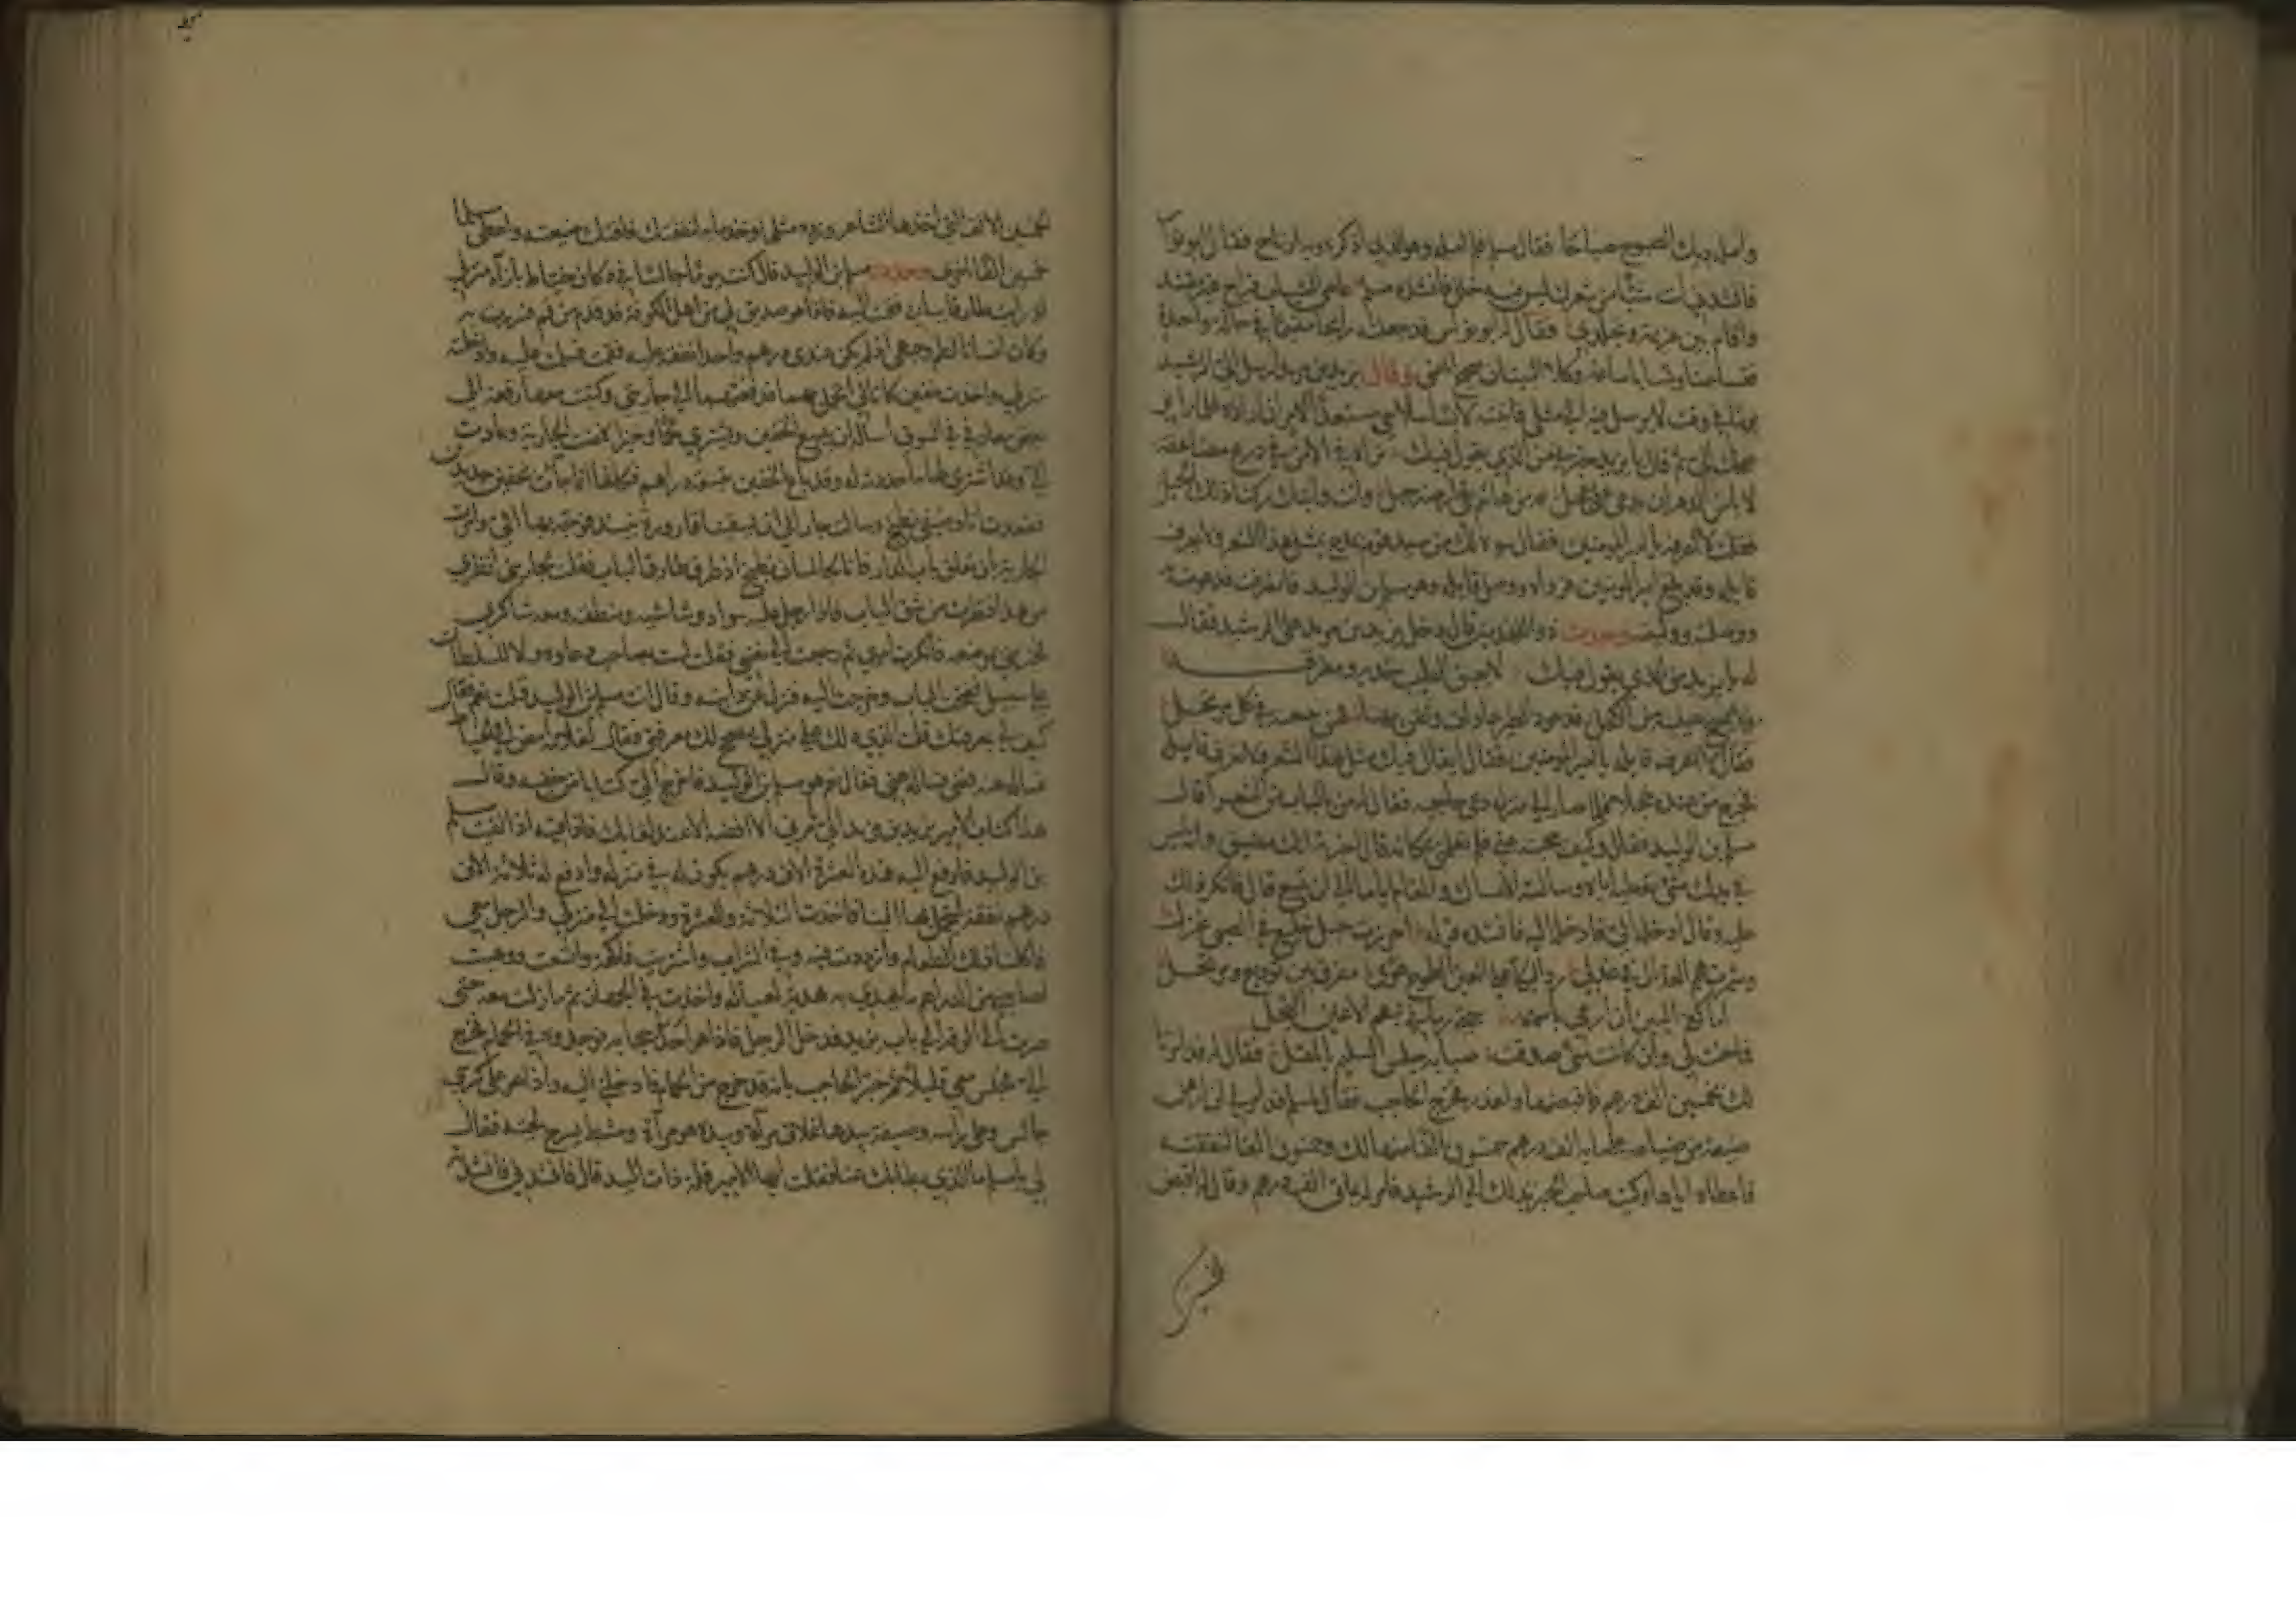 وامله ديك الصبوح صياحا فقال مسلم فلم امله وهو الذي اذكره وبه ارتاح فقال ابو نواس
فانشدني انت شيئا من شعرك ليس فيه خلل فانشده مسلم عاصى الشباب فراح غير مفند
واقام بين عزيمة وتجلد فقال له ابو نواس قد جعلته رايحا مقيما في حالة واحدة
فتشاغبا وتسابا ساعة وكلا البيتين صحيح المعنى وقال يزيد بن مزيد ارسل الي الرشيد
يوما في وقت لا يرسل فيه الى مثلي فاتيته لابسا سلاحي مستعدا لامر ان اراده فلما راني
ضحك الي ثم قال يا يزيد خبرني من الذي يقول فيك تراه في الامن في درع مضاعفة
لا يامن الدهر ان يدعى على عجل لله من هاشم في ارضه جبل وانت وابنك ركنا ذلك الجبل
فقلت لا اعرفه يا امير المومنين فقال سوءة لك من سيد قوم يمدح بمثل هذا الشعر ولا تعرف
قايله وقد بلغ امير المومنين فرواه ووصل قايله وهو مسلم بن الوليد فانصرفت فدعوت به
ووصلته ووليته وحدث ذو الهدمين قال دخل يزيد بن مزيد على الرشيد فقال
له يا يزيد من الذي يقول فيك لا يعبق الطيب خديه ومفرقه
ولا يمسح عينيه من الكحل قد عود الطير عادات وثقن بها فهن يتبعنه في كل مرتحل
فقال لا اعرف قايله يا امير المومنين فقال ايقال فيك مثل هذا الشعر ولا تعرف قايله
فخرج من عنده خجلا فلما صار الى منزله دعى حاجبه فقال له من بالباب من الشعرا قال
مسلم بن الوليد فقال وكيف حجبته عني فلم تعلمني بمكانه قال اخبرته انك مضيق وانه ليس
في يديك شئ تعطيه اياه وسالته الامساك والمقام اياما الى ان تتسع قال فانكر ذلك
عليه وقال ادخله الي فادخله اليه فانشده قوله اجررت حبل خليع في الصبى غزل
وشمرت همم العذال في عذلي رد البكا على العين الطموح هوى مفرق بين توديع ومرتحل
اما كفى البين ان ارمى باسهمه حتى رماني بسهم الاعين النجل
مما جنت لي وان كانت منى صدقت صبابة خلس التسليم بالمقل فقال له قد امرنا
لك بخمسين الف درهم فاقبضها واعذر فخرج الحاجب فقال لمسلم قد امرني ان ارهن
ضيعة من ضياعه على ماية الف درهم خمسون الفا منها لك وخمسون الفا لنفقته
فاعطاه اياها وكتب صاحب الخبر بذلك الى الرشيد فامر له بمايتي الف درهم وقال اقض
الخمسين
الخمسين الالف التي اخذها الشاعر وزده مثلها وخذ ماية لنفقتك فافتك ضيعته واعطى مسلما
خمسين الفا اخرى وحدث مسلم بن الوليد قال كنت يوما جالسا في دكان خياط بازاء منزلي
اذ رايت طارقا ببابي فقمت اليه فاذا هو صديق لي من اهل الكوفة قد قدم من قم فسررت به
وكان انسانا لطم وجهي اذ لم يكن عندي درهم واحد انفقه عليه فقمت فسلمت عليه وادخلته
منزلي واخذت خفين كانا لي اتجمل بهما فدفعتهما الى جاريتي وكتبت معها رقعة الى
بعض معارفي في السوق اساله ان يبيع الخفين ويشتري لحما وخبزا فمضت الجارية وعادت
الي وقد اشترى لها ما حددته له وقد باع الخفين بتسعة دراهم فكانها انما جاءت بخفين جديدين
فقعدت انا وضيفي نطبخ وسالت جارا لي ان يسقينا قارورة نبيذ فوجه بها الي وامرت
الجارية بان تغلق باب الدار فانا لجالسان نطبخ اذ طرق طارق الباب فقلت لجاريتي انظري
من هذا فنظرت من شق الباب فاذا رجل عليه سواد وشاشية ومنطقة ومعه شاكري
فخبرتني بموضعه فانكرت امري ثم رجعت الى نفسي فقلت لست بصاحب دعارة ولا للسلطان
علي سبيل ففتحت الباب وخرجت اليه فنزل عن دابته وقال انت مسلم بن الوليد قلت نعم فقال
كيف لي بمعرفتك قلت الذي دلك على منزلي يصحح لك معرفتي فقال لغلامه امض الى الخياط
فساله عنه فمضى فساله عني فقال نعم هو مسلم بن الوليد فاخرج الي كتابا من خفه وقال
هذا كتاب الامير يزيد بن مزيد الي يامرني الا افضه الا عند لقائك فاذا فيه اذا لقيت مسلم
بن الوليد فادفع اليه هذه العشرة الاف درهم يكون له في منزله وادفع له ثلاثة الاف
درهم نفقة ليتحمل بها الينا فاخذت الثلاثة والعشرة ودخلت الى منزلي والرجل معي
فاكلنا ذلك الطعام وازددت فيه وفي الشراب واشتريت فاكهة واتسعت ووهبت
لضيفي من الدراهم ما يهدي به هدية لعياله واخذت في الجهاز ثم ما زلت معه حتى
صرت الى الرقة الى باب يزيد فدخل الرجل فاذا هو احد حجابه فوجده في الحمام فخرج
الي فجلس معي قليلا ثم خبر الحاجب بانه قد خرج من الحمام فادخلني اليه واذا هو على كرسي
جالس وعلى راسه وصيفة بيدها غلاف مرآة وبيده هو مرآة ومشط يسرح لحيته فقال
لي يا مسلم ما الذي بطا بك عنا فقلت ايها الامير قلة ذات اليد قال فانشدني فانشدته